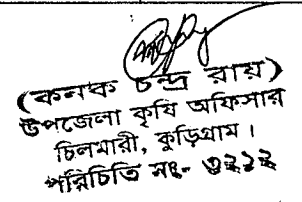 (কনক চন্দ্র রায়)
উপজেলা কৃষি অফিসার
চিলমারী, কুড়িগ্রাম।
পরিচিতি নং- ৩২১২